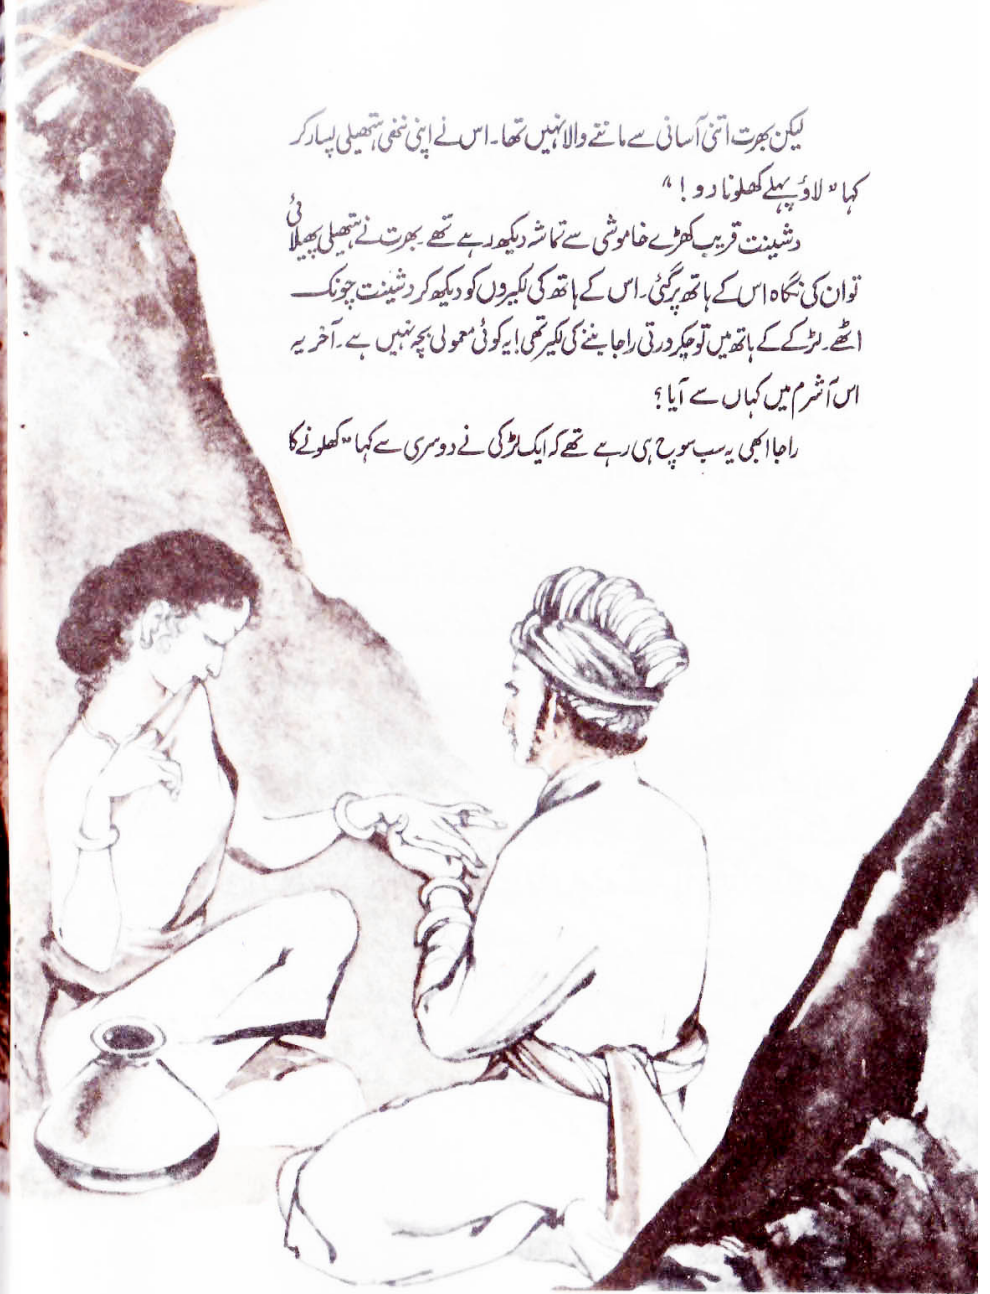 لیکن بھرت اتنی آسانی سے ماننے والا نہیں تھا۔ اس نے اپنی ننھی ہتھیلی پسار کر
کہا "لاؤ پہلے کھلونا دو!"
دشینت قریب کھڑے خاموشی سے تماشہ دیکھ رہے تھے۔ بھرت نے ہتھیلی پھیلائی
تو ان کی نگاہ اس کے ہاتھ پر گئی۔ اس کے ہاتھ کی لکیروں کو دیکھ کر دشینت چونک
اٹھے۔ لڑکے کے ہاتھ میں تو چکرورتی راجا بننے کی لکیر تھی! یہ کوئی معمولی بچہ نہیں ہے۔ آخر یہ
اس آشرم میں کہاں سے آیا؟
راجا ابھی یہ سب سوچ ہی رہے تھے کہ ایک لڑکی نے دوسری سے کہا "کھلونے کا